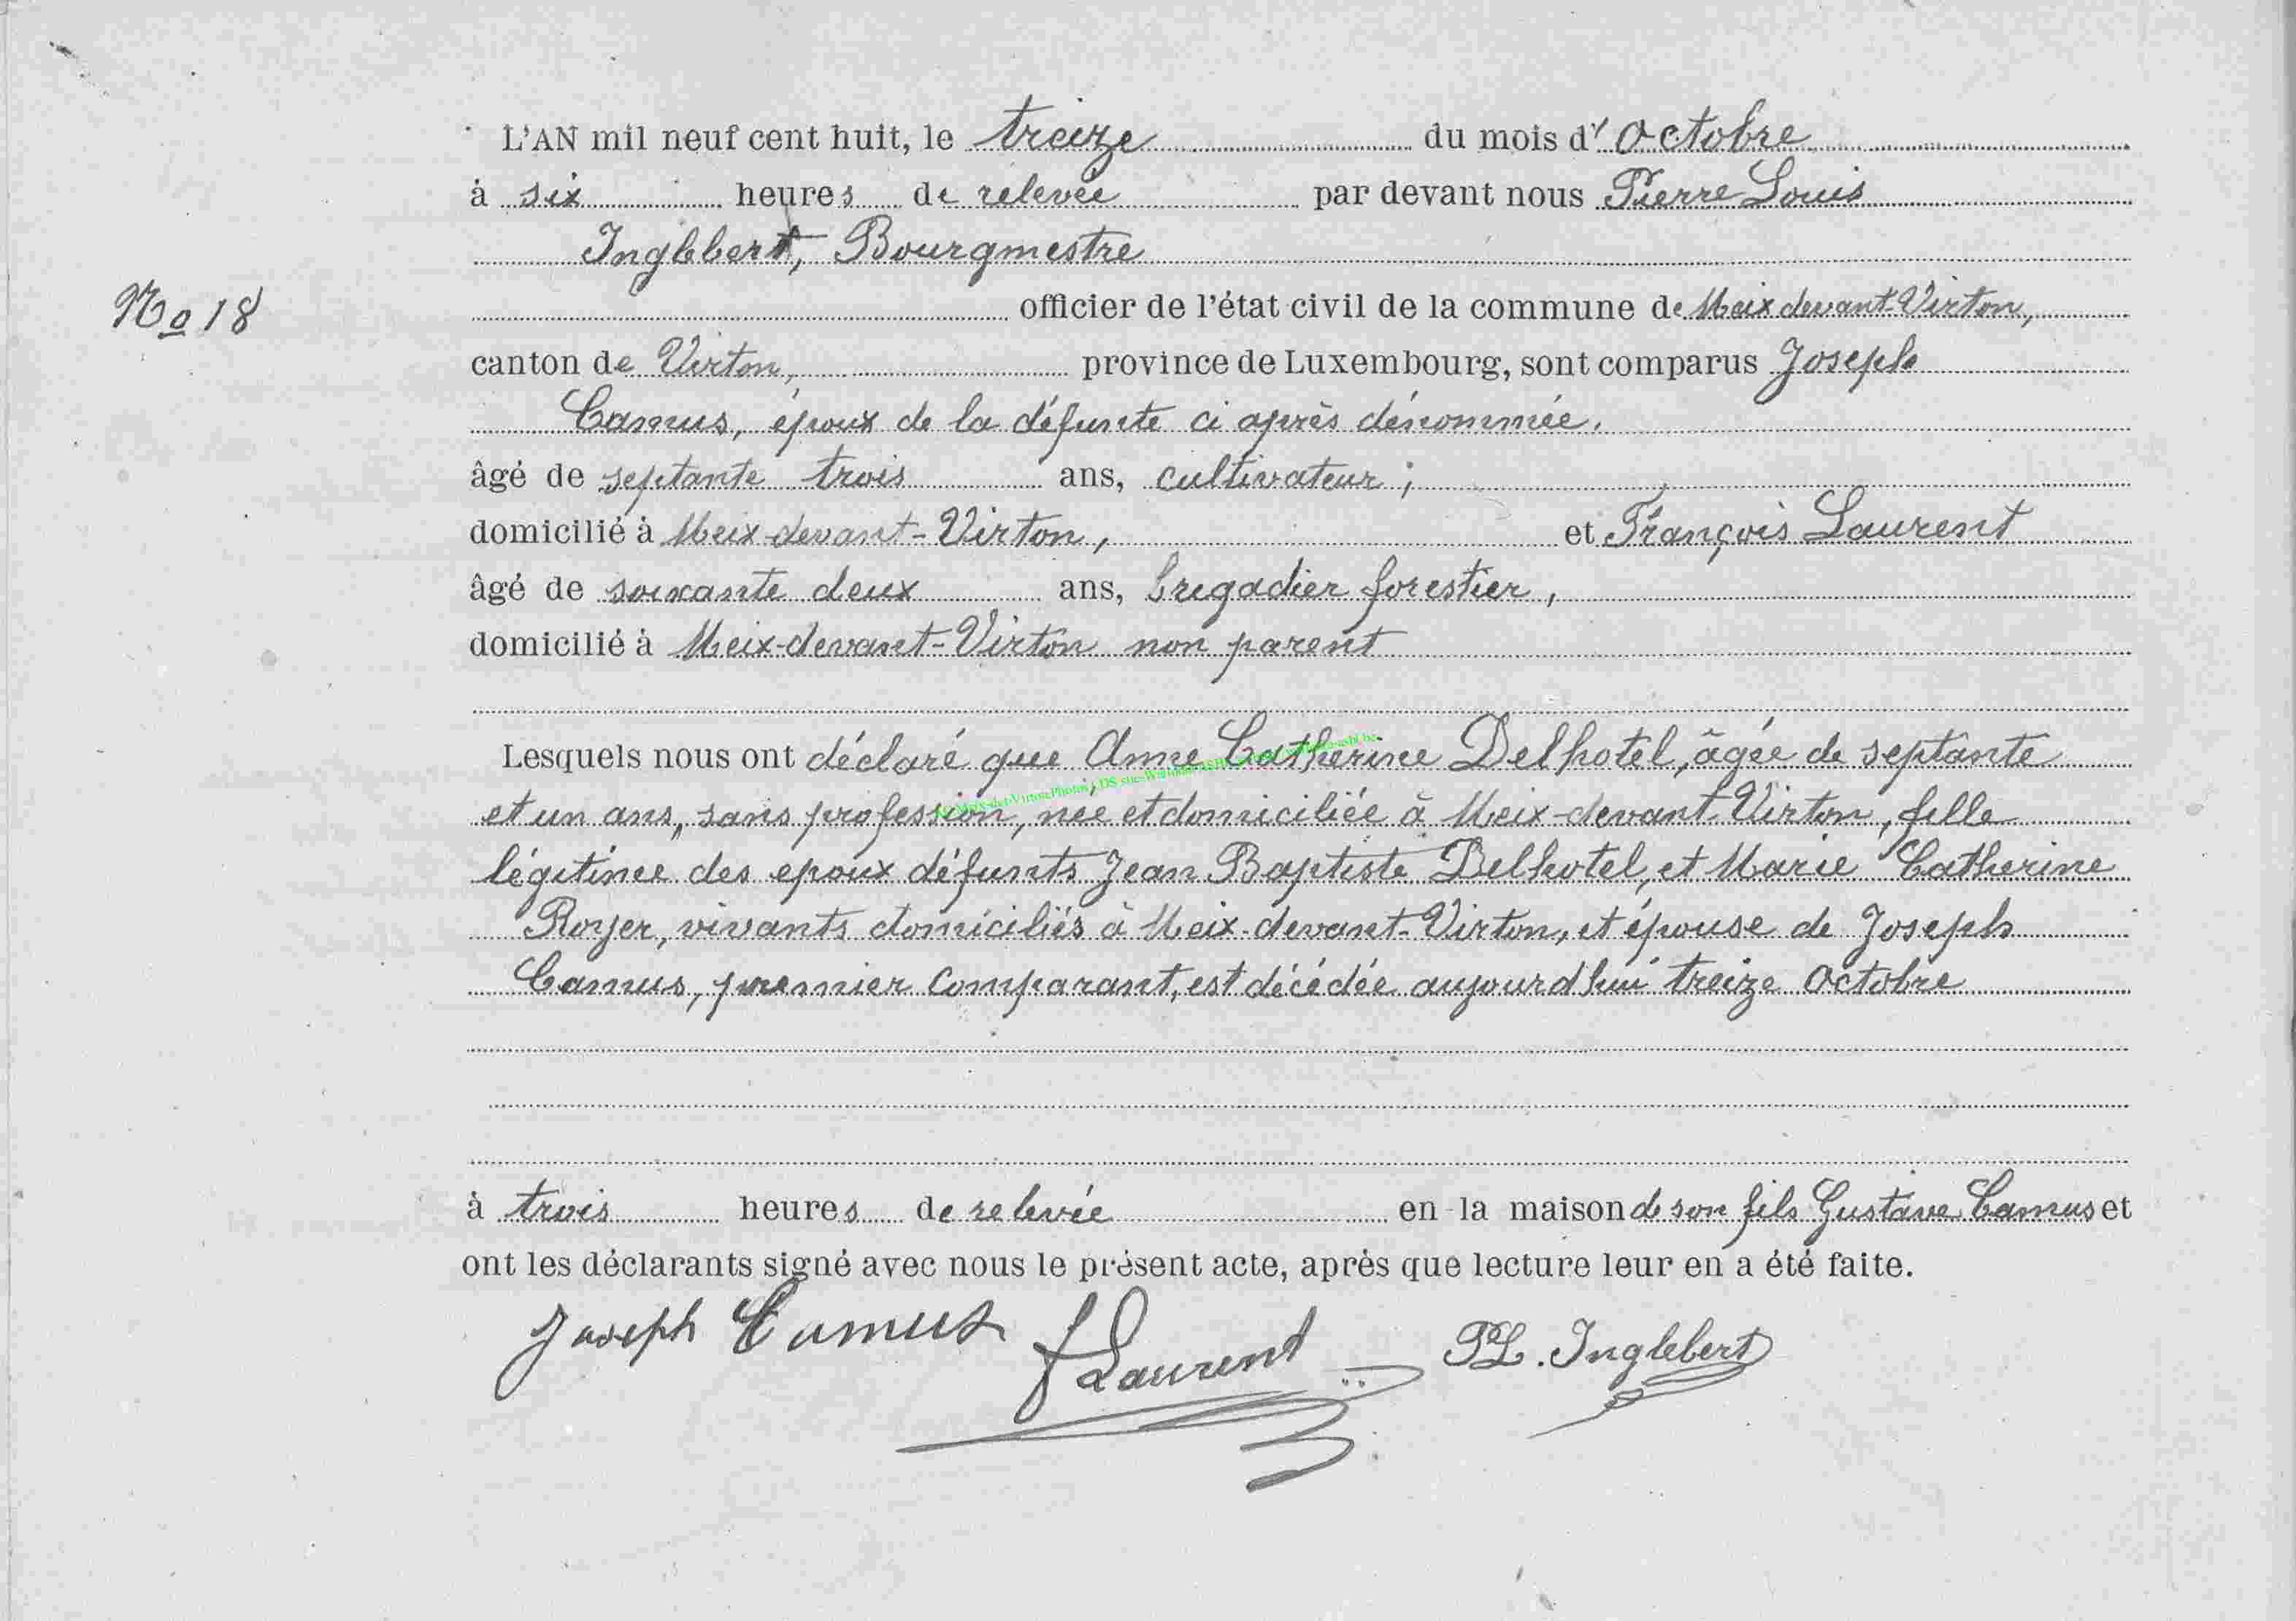 L'AN mil neuf cent huit, le treize du mois d' Octobre
à six heures de relevée par devant nous Pierre Louis
Inglebert, Bourgmestre
officier de l'état civil de la commune de Meix devant-Virton,
No 18
canton de Virton, province de Luxembourg, sont comparus Joseph
Camus, époux de la défunte ci après dénommée.
âgé de septante trois ans, cultivateur ;
domicilié à Meix-devant-Virton, et François Laurent
âgé de soixante deux ans, brigadier forestier,
domicilié à Meix-devant-Virton non parent
Lesquels nous ont déclaré que Anne Catherine Delhotel, âgée de septante
et un ans, sans profession, née et domiciliée à Meix-devant-Virton, fille
légitime des epoux défunts Jean Baptiste Delhotel, et Marie Catherine
Royer, vivants domiciliés à Meix-devant-Virton, et épouse de Joseph
Camus, premier comparant, est décédée aujourd'hui treize Octobre
à trois heures de relevée en la maison de son fils Gustave Camus et
ont les déclarants signé avec nous le présent acte, après que lecture leur en a été faite.
Joseph Camus f Laurent PL. Inglebert